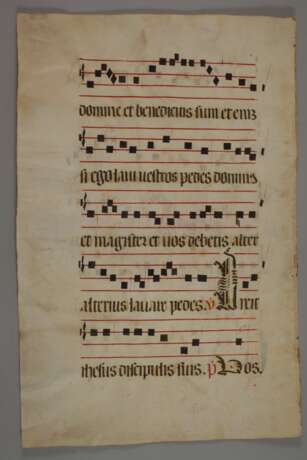 domine et benedictus sum etenim
si ego laui uestros pedes dominus
et magister et uos debetis alter
alterius lauare pedes. V Dixit
ihesus discipulis suis. P Uos.